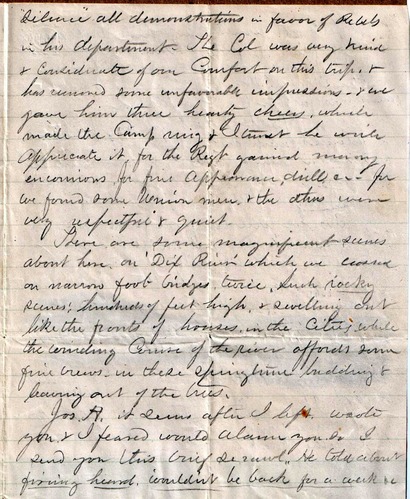 silence" all demonstrations in favor of Rebels
in his department - The Col was very kind
& considerate of our Comfort on this trip, &
has removed some unfavorable impressions - & we
gave him three hearty cheers, which
made the Camp ring & I trust he will
appreciate it, for the Regt gained many
encomiums for fine appearance, drill, &c - for
we found some Union men, & the others were
very respectful & quiet.
There are some magnificent scenes
about here on "Dix River" which we crossed
on narrow foot bridges, twice, such rocky
scenes! hundreds of feet high, & swelling out
like the fronts of houses in the Cities, while
the winding Course of the river affords some
fine views, in these springtime budding &
leaving out of the trees.
Jos. A. it seems after I left, wrote
you, & I feared would alarm you, so I
send you this brief He told about
firing heard, wouldn't be back for a week &